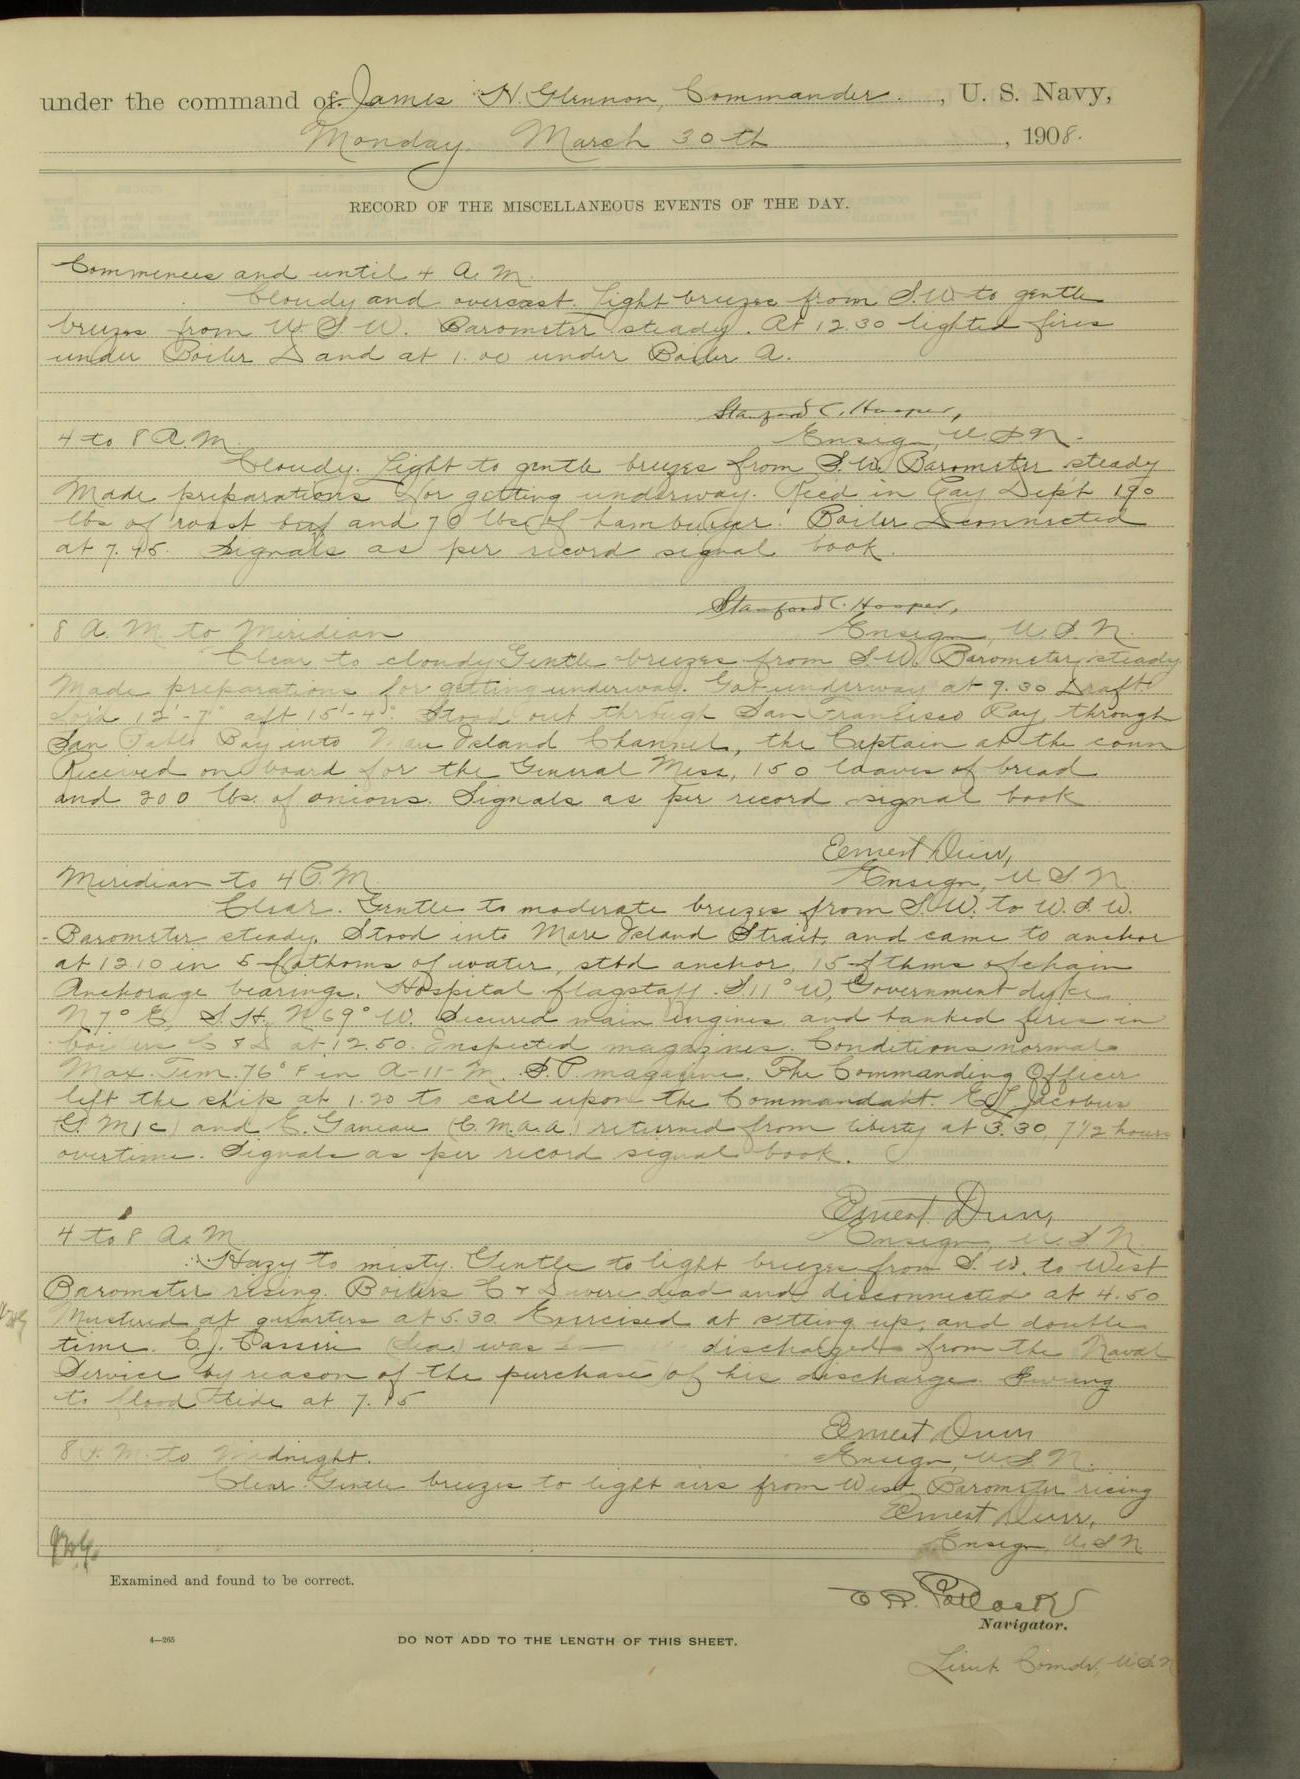 under the command of James H. Glennon, Commander, U. S. Navy,
Monday March 30th, 1908.
RECORD OF THE MISCELLANEOUS EVENTS OF THE DAY.
Commences and until 4 A. M.
Cloudy and overcast. Light breezes from S.W. to gentle
breezes from W. S. W. Barometer steady. At 12.30 lighted fires
under Boiler D and at 1.00 under Boiler A.
Stanford C. Hooper,
Ensign, U.S.N.
4 to 8 A M.
Cloudy. Light to gentle breezes from S.W. Barometer steady
Made preparations for getting underway. Rec'd in Pay Dep't 190
lbs of roast beef and 70 lbs of hamburger. Boiler D connected
at 7.45. Signals as per record signal book.
Stanford C. Hooper,
Ensign, U.S.N.
8 A. M. to Meridian
Clear to cloudy. Gentle breezes from S.W. Barometer steady
Made preparations for getting underway. Got underway at 9.30 Draft
for'd 12'-7" aft 15'-4" Stood out through San Francisco Bay, through
San Pablo Bay into Mare Island Channel, the Captain at the conn
Received on board for the General Mess, 150 loaves of bread
and 200 lbs. of onions. Signals as per record signal book
Ernest Durr,
Ensign, U S N.
Meridian to 4 P. M.
Clear. Gentle to moderate breezes from S.W. to W.S.W.
Barometer steady. Stood into Mare Island Strait, and came to anchor
at 12 10 in 5 fathoms of water, stbd anchor, 15 fthms of chain
Anchorage bearings. Hospital flagstaff S. 11° W, Government dyke
N 7° E, S. H. N 69° W. Secured main engines and banked fires in
boilers C & D at 12.50. Inspected magazines. Conditions normal
Max. Tem. 76° F in A-11-M. S.P. magazine. The Commanding Officer
left the ship at 1.20 to call upon the Commandant. E.L. Jacobus
G. M. 1c) and E. Ganeau (C.M.a.a.) returned from liberty at 3.30, 7 1/2 hours
overtime. Signals as per record signal book.
Ernest Durr,
Ensign, U.S.N.
4 to 8 A. M.
Hazy to misty. Gentle to light breezes from S. W. to West
Barometer rising. Boilers C & D were dead and disconnected at 4.50
Mustered at quarters at 5.30. Exercised at setting up, and double
time. C. J. Cassin (Sea.) was discharged from the Naval
Service by reason of the purchase of his discharge. Swung
to flood tide at 7.15
Ernest Durr
Ensign, U.S.N.
8 P. M to Midnight.
Clear. Gentle breezes to light airs from West Barometer rising
Ernest Durr,
Ensign, U.S.N
Examined and found to be correct.
Navigator.
4—265
DO NOT ADD TO THE LENGTH OF THIS SHEET.
Lieut. Comdr, U.S.N